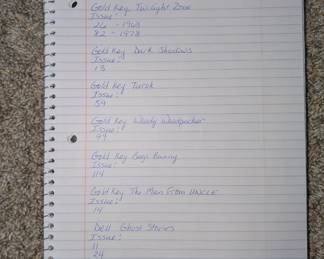 Gold Key Twilight Zone
Issue:
26 - 1968
82 - 1978
Gold Key Dark Shadows
Issue:
13
Gold Key Turok
Issue:
59
Gold Key Woody Woodpecker
Issue:
Gold Key Bugs Bunny
Issue:
114
Gold Key The Man From UNCLE
Issue:
14
Dell Ghost Stories
Issue:
11
24